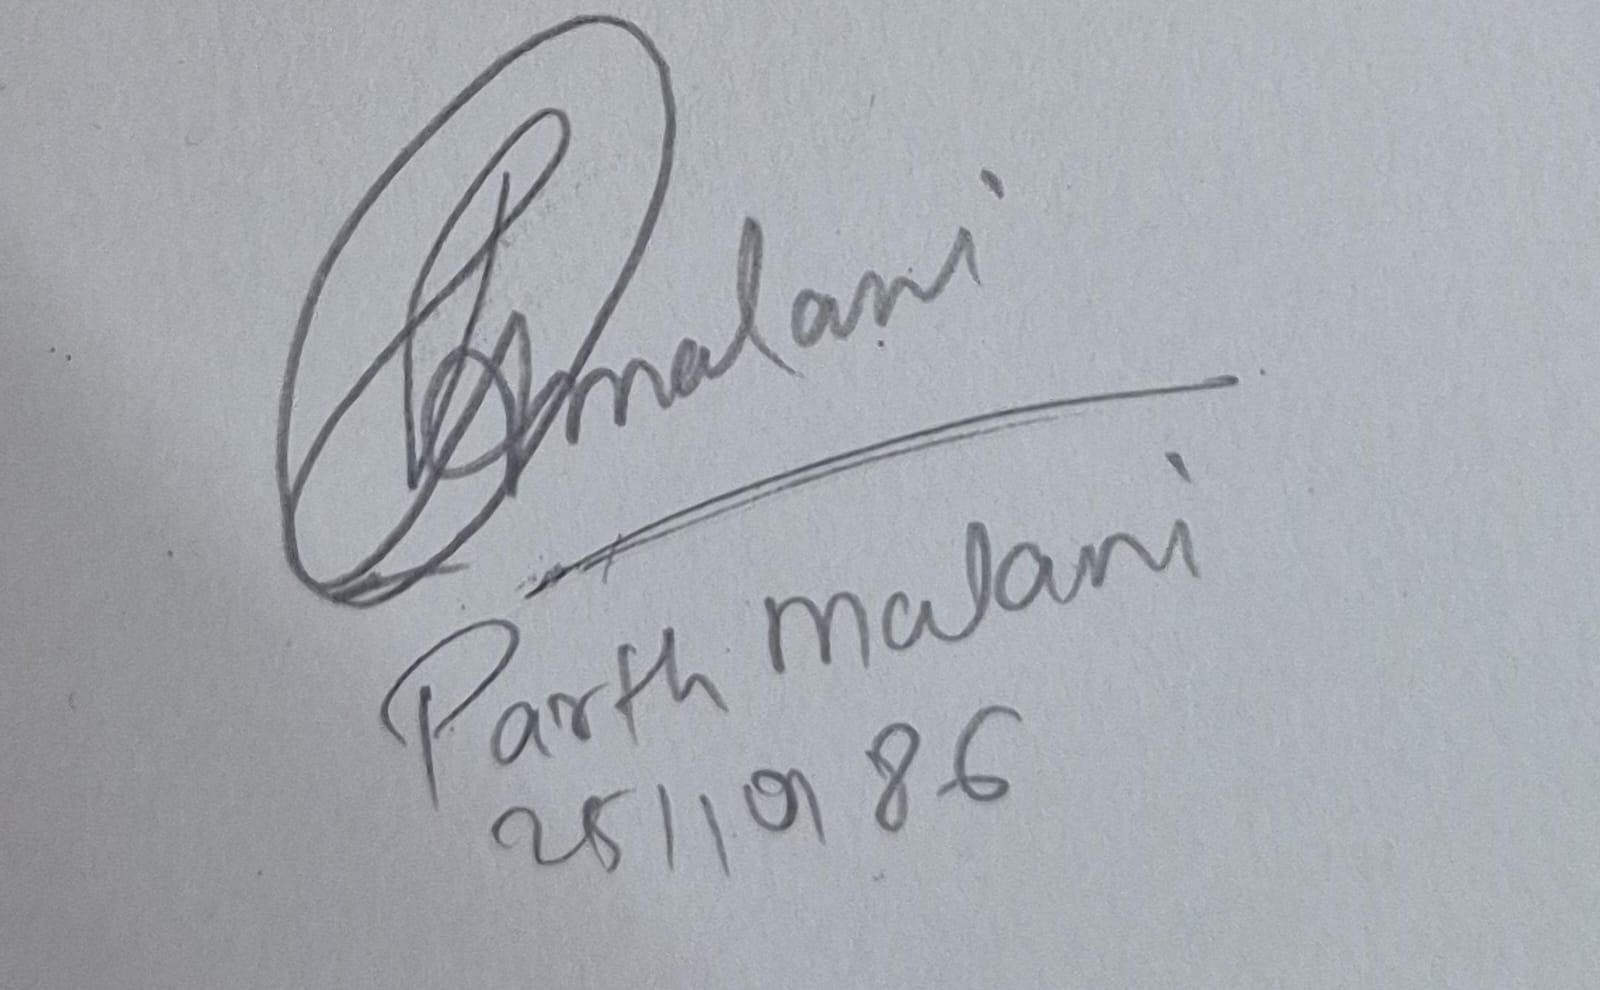 Pmalani
Parth Malani
25110186